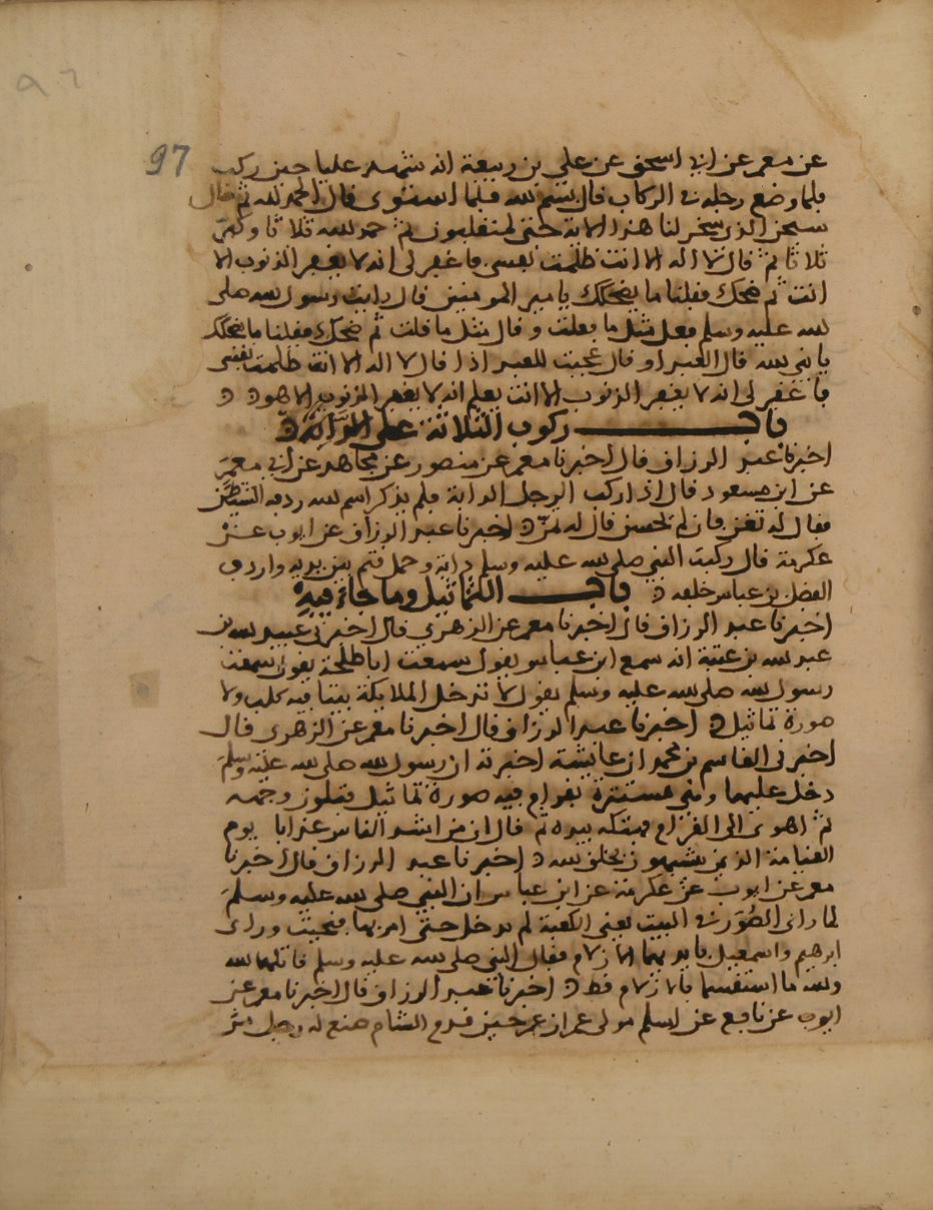 97
عن معمر عن ابي اسحق عن علي بن ربيعة انه شهد عليا حين ركب
فلما وضع رجله في الركاب قال بسم الله فلما استوى قال الحمد لله ثم قال
سبحن الذي سخر لنا هذا الاية حتى لمنقلبون ثم حمد الله ثلاثا وكبر
ثلاثا ثم قال لا اله الا انت ظلمت نفسي فاغفر لي انه لا يغفر الذنوب الا
انت ثم ضحك فقلنا ما يضحكك يامير المومنين قال رايت رسول الله صلى
الله عليه وسلم فعل مثل ما فعلت وقال مثل ما قلت ثم ضحك فقلنا ما يضحكك
يا نبي الله قال العبد او قال عجبت للعبد اذا قال لا اله الا انت ظلمت نفسي
فاغفر لي انه لا يغفر الذنوب الا انت يعلم انه لا يغفر الذنوب الا هو
باب ركوب الثلاثة على الدابة
اخبرنا عبد الرزاق قال اخبرنا معمر عن منصور عن مجاهد عن ابي معمر
عن ابن مسعود قال اذا ركب الرجل الدابة فلم يذكر اسم الله ردفه الشيطن
فقال له تغن فان لم يحسن قال له تمن اخبرنا عبد الرزاق عن ايوب عن
عكرمة قال ركب النبي صلى الله عليه وسلم دابة وحمل قثم بين يديه واردف
الفضل بن عباس خلفه باب التماثيل وما جاء فيه
اخبرنا عبد الرزاق قال اخبرنا معمر عن الزهري قال اخبرني عبيد الله بن
عبد الله بن عتبة انه سمع ابن عباس يقول سمعت ابا طلحة يقول سمعت
رسول الله صلى الله عليه وسلم يقول لا تدخل الملايكة بيتا فيه كلب ولا
صورة تماثيل اخبرنا عبد الرزاق قال اخبرنا معمر عن الزهري قال
اخبرني القاسم بن محمد ان عايشة اخبرته ان رسول الله صلى الله عليه وسلم
دخل عليها وهي مستترة بقرام فيه صورة تماثيل فتلون وجهه
ثم اهوى الى القرام فهتكه بيده ثم قال ان من اشد الناس عذابا يوم
القيامة الذين يشبهون بخلق الله اخبرنا عبد الرزاق قال اخبرنا
معمر عن ايوب عن عكرمة عن ابن عباس ان النبي صلى الله عليه وسلم
لما راى الصور في البيت يعني الكعبة لم يدخل حتى امر بها فمحيت وراى
ابرهيم واسمعيل بايديهما الازلام فقال النبي صلى الله عليه وسلم قاتلهما الله
والله ما استقسما بالازلام قط اخبرنا عبد الرزاق قال اخبرنا معمر عن
ايوب عن نافع عن اسلم مولى عمر ان عمر حين قدم الشام صنع له رجل من